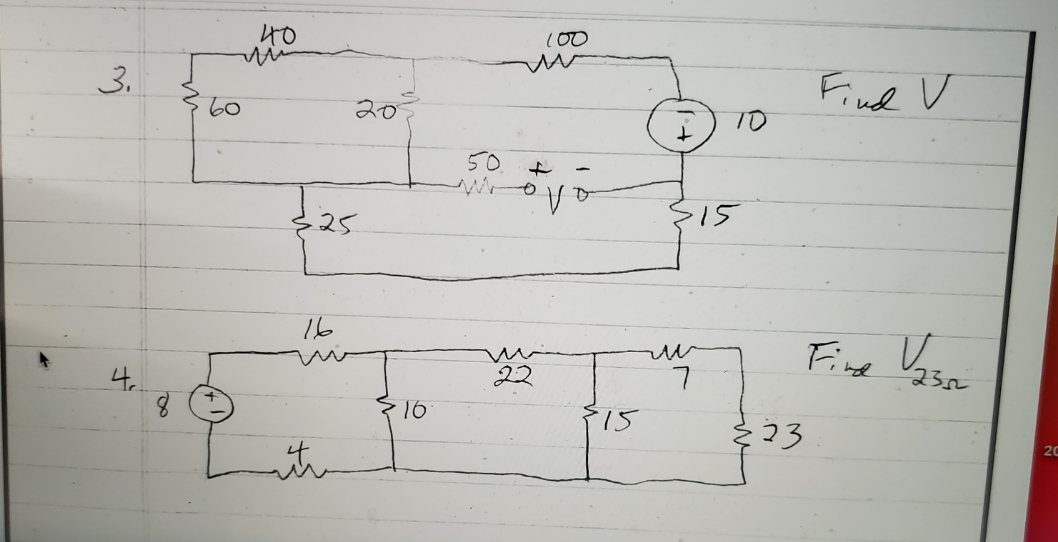 40 100
3. 60 20 - + 10 Find V
50 + -
V
25 15
16
4. 22 7 Find V23Ω
8 + - 10 15 23
4
20